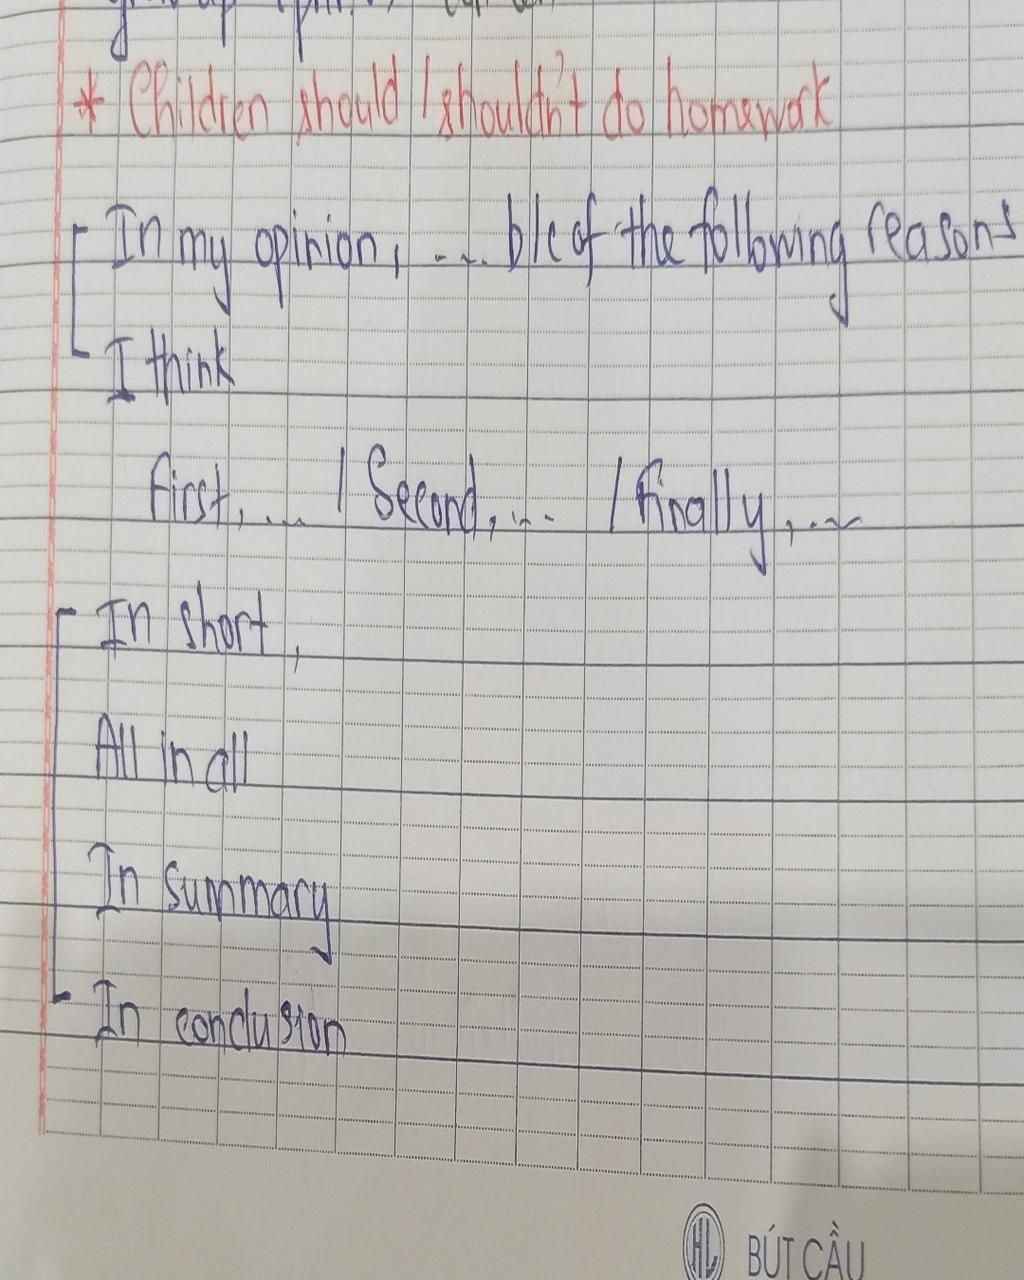 * Children should / shouldn't do homework
In my opinion, .... b/c of the following reasons
I think
First, ... / Second, ... / Finally, ...
In short,
All in all
In summary
In conclusion
HL BÚT CẦU